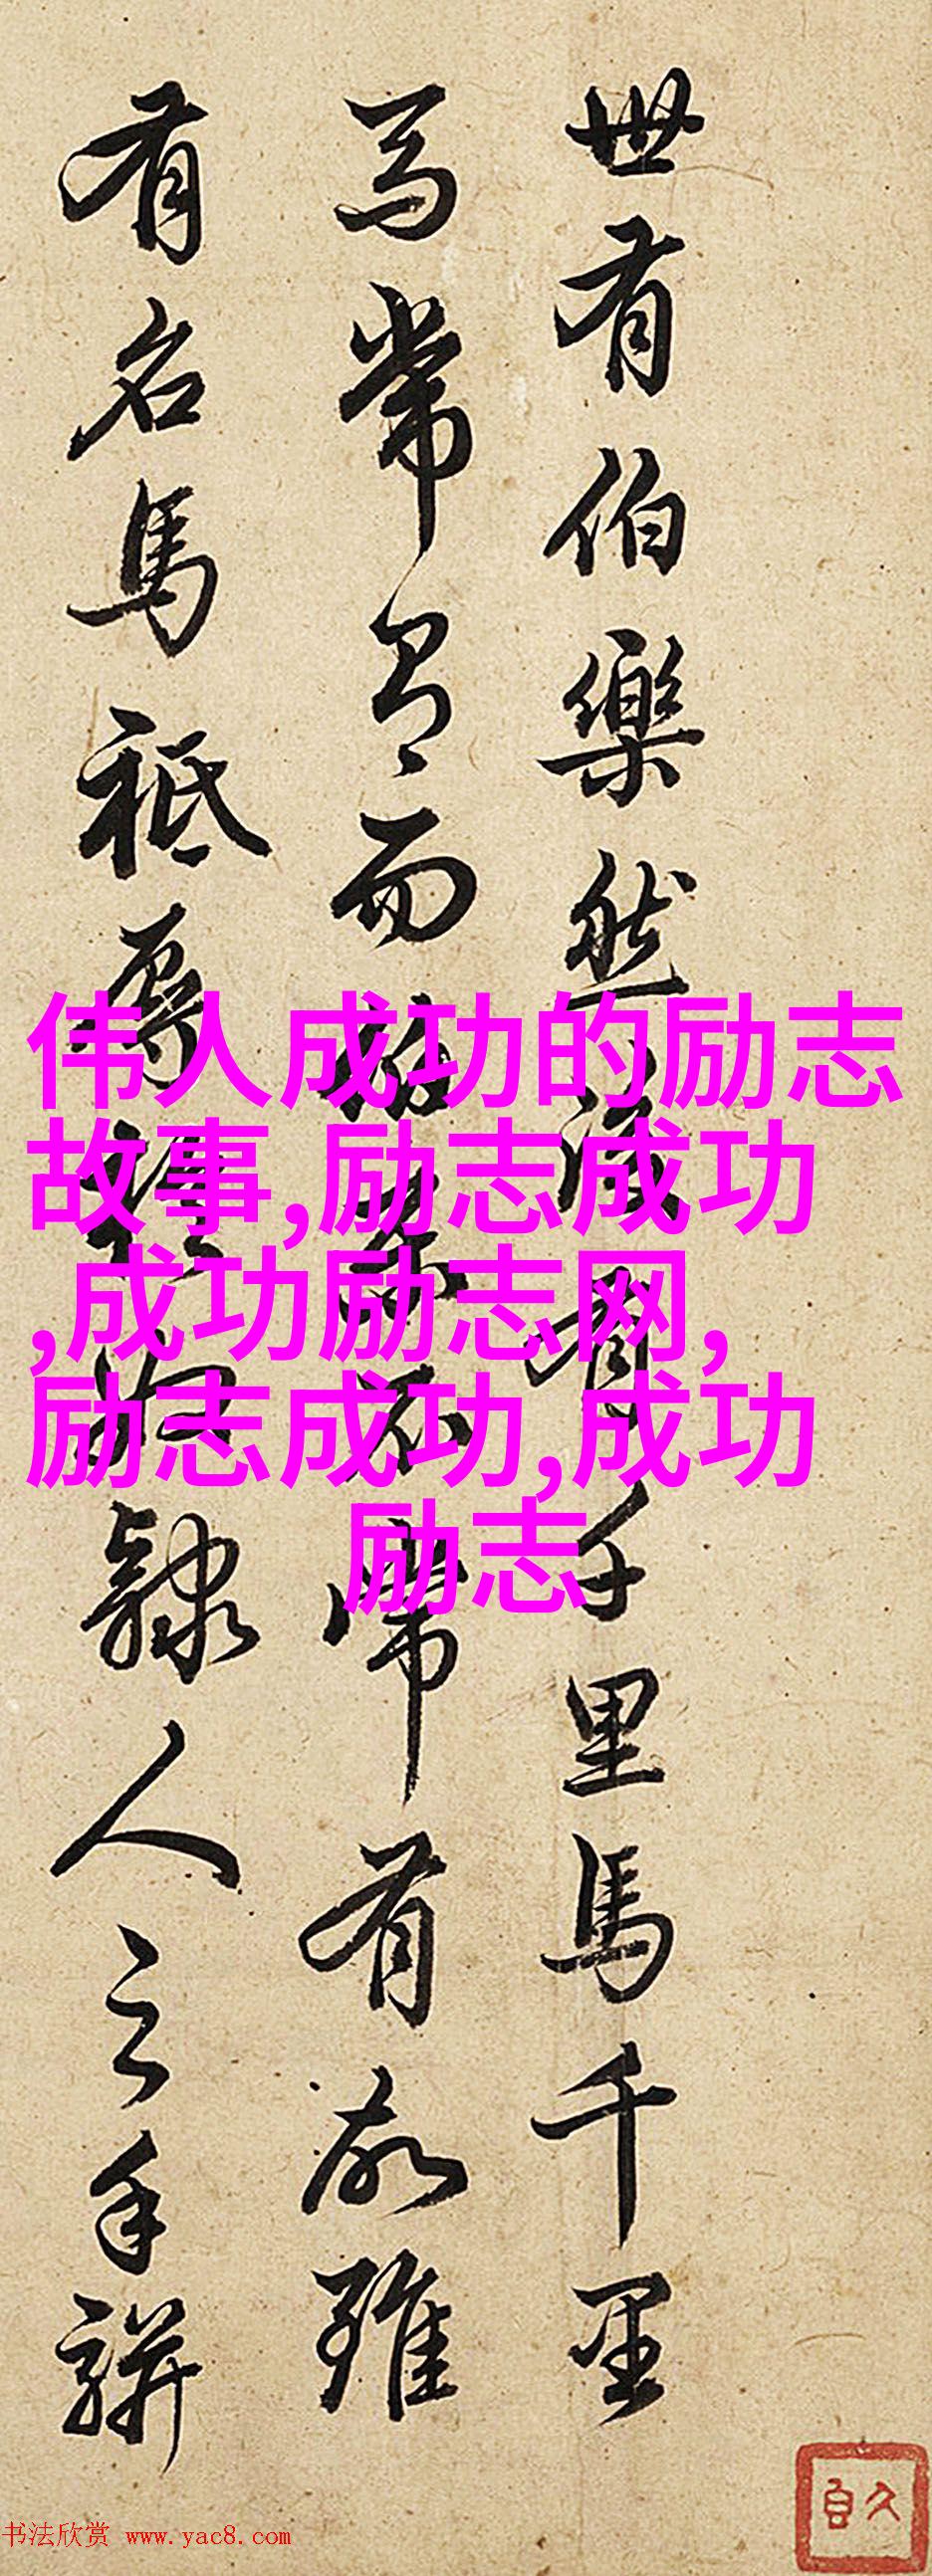 世有伯樂然後有千里馬千里
馬常有而伯樂不常有故雖
有名馬祗辱於奴隸人之手駢
伟人成功的励志
故事,励志成功
,成功励志网,
励志成功,成功
励志
书法欣赏 www.yac8.com